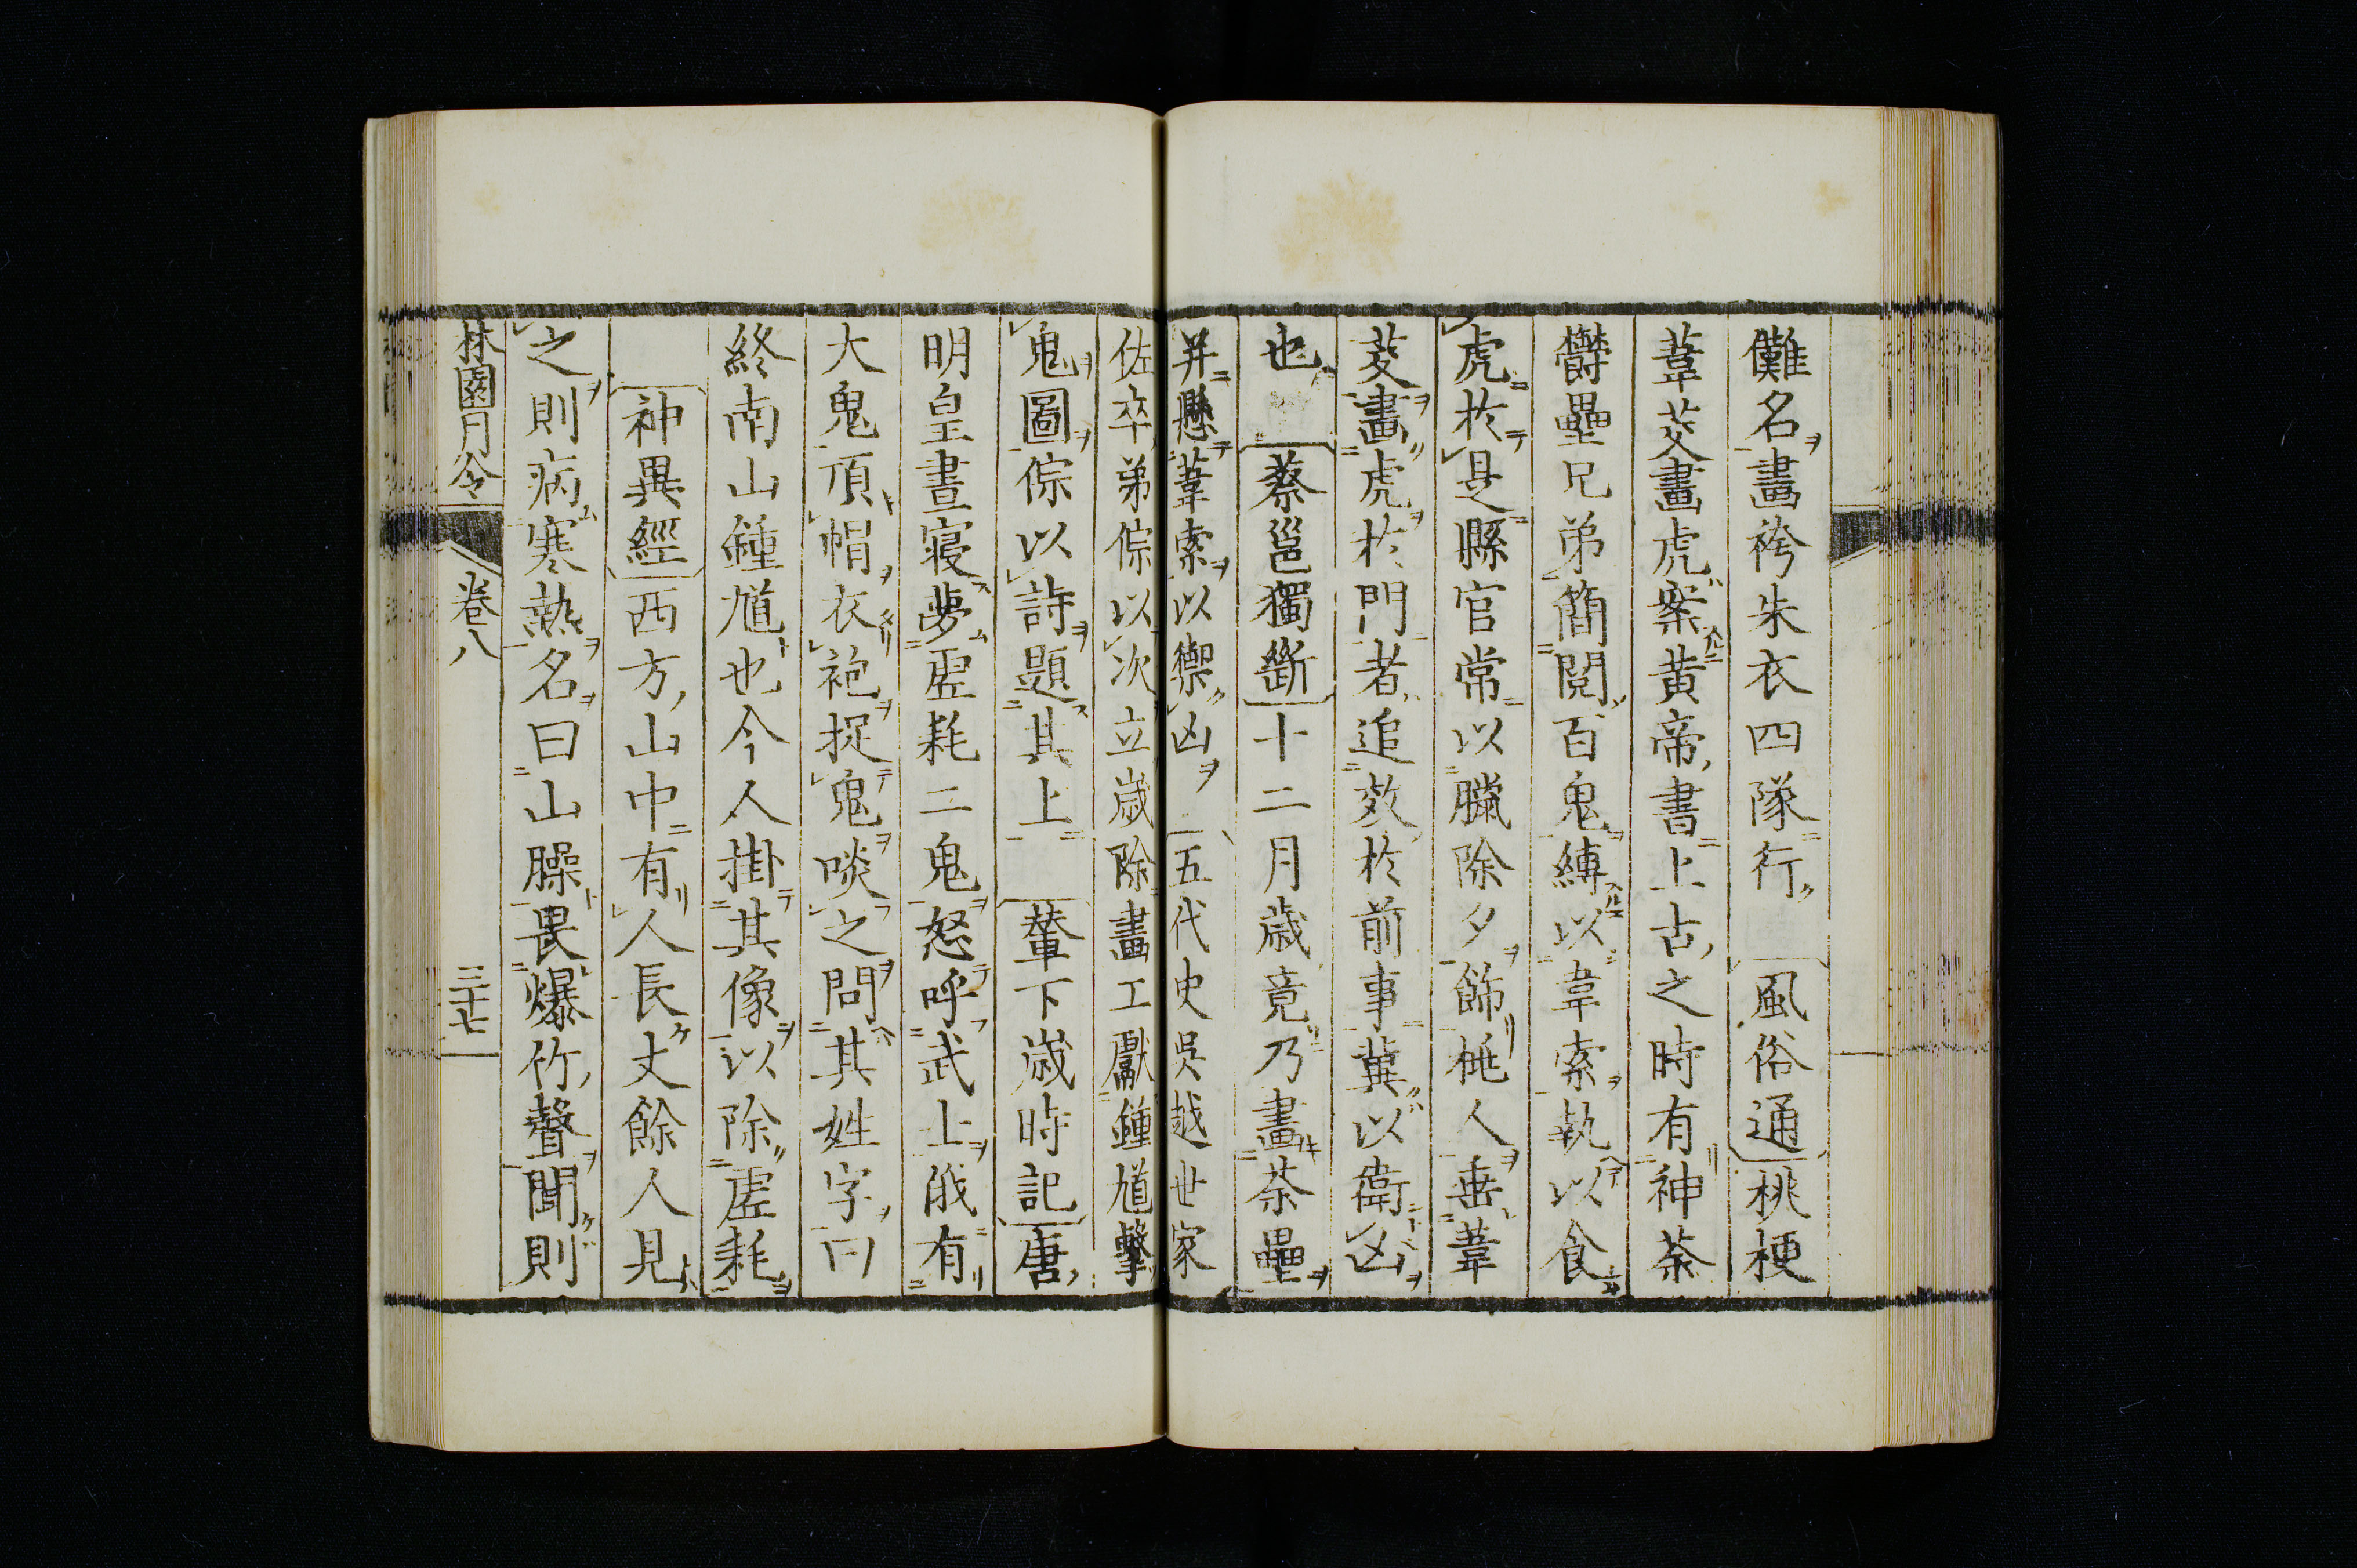 儺名畫袴朱衣四隊行　風俗通桃梗
葦茭畫虎案黃帝書上古之時有神荼
欝壘兄弟簡閱百鬼縛以葦索執以食
虎於是縣官常以臘除夕飾桃人垂葦
茭畫虎於門者追效於前事冀以衛凶
也　蔡邕獨斷十二月歲竟乃畫荼壘
并懸葦索以禦凶　五代史吳越世家
佐卒弟倧以次立歲除畫工獻鍾馗擊
鬼圖倧以詩題其上　輦下歲時記唐
明皇晝寢夢虛耗二鬼怒呼武士俄有
大鬼頂帽衣袍捉鬼啖之問其姓字曰
終南山鍾馗也今人掛其像以除虛耗
神異經西方山中有人長丈餘人見
之則病寒熱名曰山臊畏爆竹聲聞則
林園月令　卷八　三十七